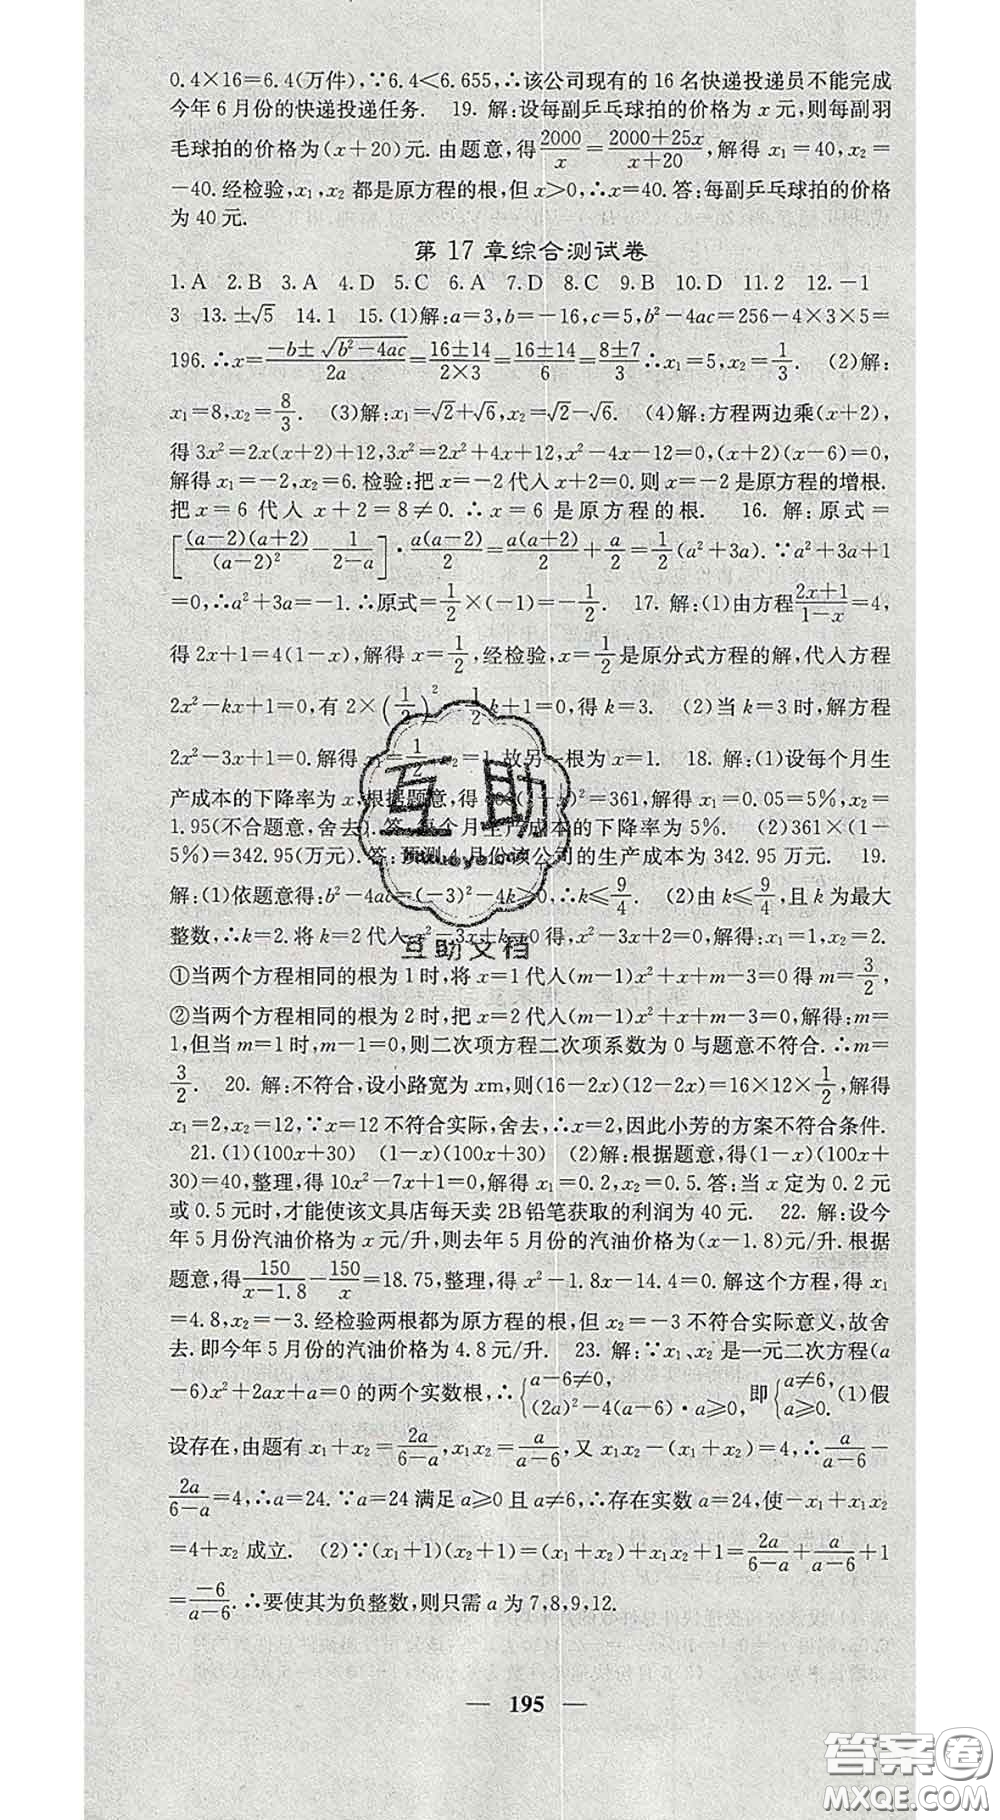 0.4×16=6.4(万件),∵6.4<6.655,∴该公司现有的16名快递投递员不能完成
今年6月份的快递投递任务. 19. 解:设每副乒乓球拍的价格为x元,则每副羽
毛球拍的价格为(x+20)元.由题意,得2000/x=(2000+25x)/(x+20),解得x₁=40,x₂=
-40.经检验,x₁,x₂都是原方程的根,但x>0,∴x=40.答:每副乒乓球拍的价格
为40元.
第17章综合测试卷
1. A 2. B 3. A 4. D 5. C 6. A 7. D 8. C 9. B 10. D 11. 2 12. -1
3 13. ±√5 14. 1 15. (1)解:a=3,b=-16,c=5,b²-4ac=256-4×3×5=
196.∴x=(-b±√(b²-4ac))/2a=(16±14)/(2×3)=(16±14)/6=(8±7)/3∴x₁=5,x₂=1/3. (2)解:
x₁=8,x₂=8/3. (3)解:x₁=√2+√6,x₂=√2-√6. (4)解:方程两边乘(x+2),
得3x²=2x(x+2)+12,3x²=2x²+4x+12,x²-4x-12=0,(x+2)(x-6)=0,
解得x₁=-2,x₂=6.检验:把x=-2代入x+2=0.则x=-2是原方程的增根.
把x=6代入x+2=8≠0.∴x=6是原方程的根. 16. 解:原式=
[(a-2)(a+2)/(a-2)²-1/(2-a)]·a(a-2)/2=a(a+2)/2+a/2=1/2(a²+3a).∵a²+3a+1
=0,∴a²+3a=-1.∴原式=1/2×(-1)=-1/2. 17. 解:(1)由方程(2x+1)/(1-x)=4,
得2x+1=4(1-x),解得x=1/2,经检验,x=1/2是原分式方程的解,代入方程
2x²-kx+1=0,有2×(1/2)²-1/2k+1=0,得k=3. (2)当k=3时,解方程
2x²-3x+1=0.解得x₁=1/2,x₂=1.故另一根为x=1. 18. 解:(1)设每个月生
产成本的下降率为x,根据题意,得400(1-x)²=361,解得x₁=0.05=5%,x₂=
1.95(不合题意,舍去).答:每个月生产成本的下降率为5%. (2)361×(1-
5%)=342.95(万元).答:预测4月份该公司的生产成本为342.95万元. 19.
解:(1)依题意得:b²-4ac=(-3)²-4k≥0,∴k≤9/4. (2)由k≤9/4,且k为最大
整数,∴k=2.将k=2代入x²-3x+k=0得,x²-3x+2=0解得:x₁=1,x₂=2.
①当两个方程相同的根为1时,将x=1代入(m-1)x²+x+m-3=0得m=3/2,
②当两个方程相同的根为2时,把x=2代入(m-1)x²+x+m-3=0,解得:m=
1,但当m=1时,m-1=0,则二次项方程二次项系数为0与题意不符合.∴m=
3/2. 20. 解:不符合,设小路宽为xm,则(16-2x)(12-2x)=16×12×1/2,解得
x₁=2,x₂=12,∵x=12不符合实际,舍去,∴x=2,因此小芳的方案不符合条件.
21. (1)(100x+30) (1-x)(100x+30) (2)解:根据题意,得(1-x)(100x+
30)=40,整理,得10x²-7x+1=0,解得x₁=0.2,x₂=0.5.答:当x定为0.2元
或0.5元时,才能使该文具店每天卖2B铅笔获取的利润为40元. 22. 解:设今
年5月份汽油价格为x元/升,则去年5月份的汽油价格为(x-1.8)元/升.根据
题意,得150/(x-1.8)-150/x=18.75,整理,得x²-1.8x-14.4=0.解这个方程,得x₁
=4.8,x₂=-3.经检验两根都为原方程的根,但x₂=-3不符合实际意义,故舍
去.即今年5月份的汽油价格为4.8元/升. 23. 解:∵x₁、x₂是一元二次方程(a
-6)x²+2ax+a=0的两个实数根,∴{a-6≠0,(2a)²-4(a-6)·a≥0,即{a≠6,a≥0.(1)假
设存在,由题有x₁+x₂=2a/(6-a),x₁x₂=a/(a-6),又x₁x₂-(x₁+x₂)=4,∴a/(a-6)-
2a/(6-a)=4,∴a=24.∵a=24满足a≥0且a≠6,∴存在实数a=24,使-x₁+x₁x₂
=4+x₂成立. (2)∵(x₁+1)(x₂+1)=(x₁+x₂)+x₁x₂+1=2a/(6-a)+a/(a-6)+1
=-6/(a-6).∴要使其为负整数,则只需a为7,8,9,12.
— 195 —
互助
互助文档
答案圈
MXQE.COM